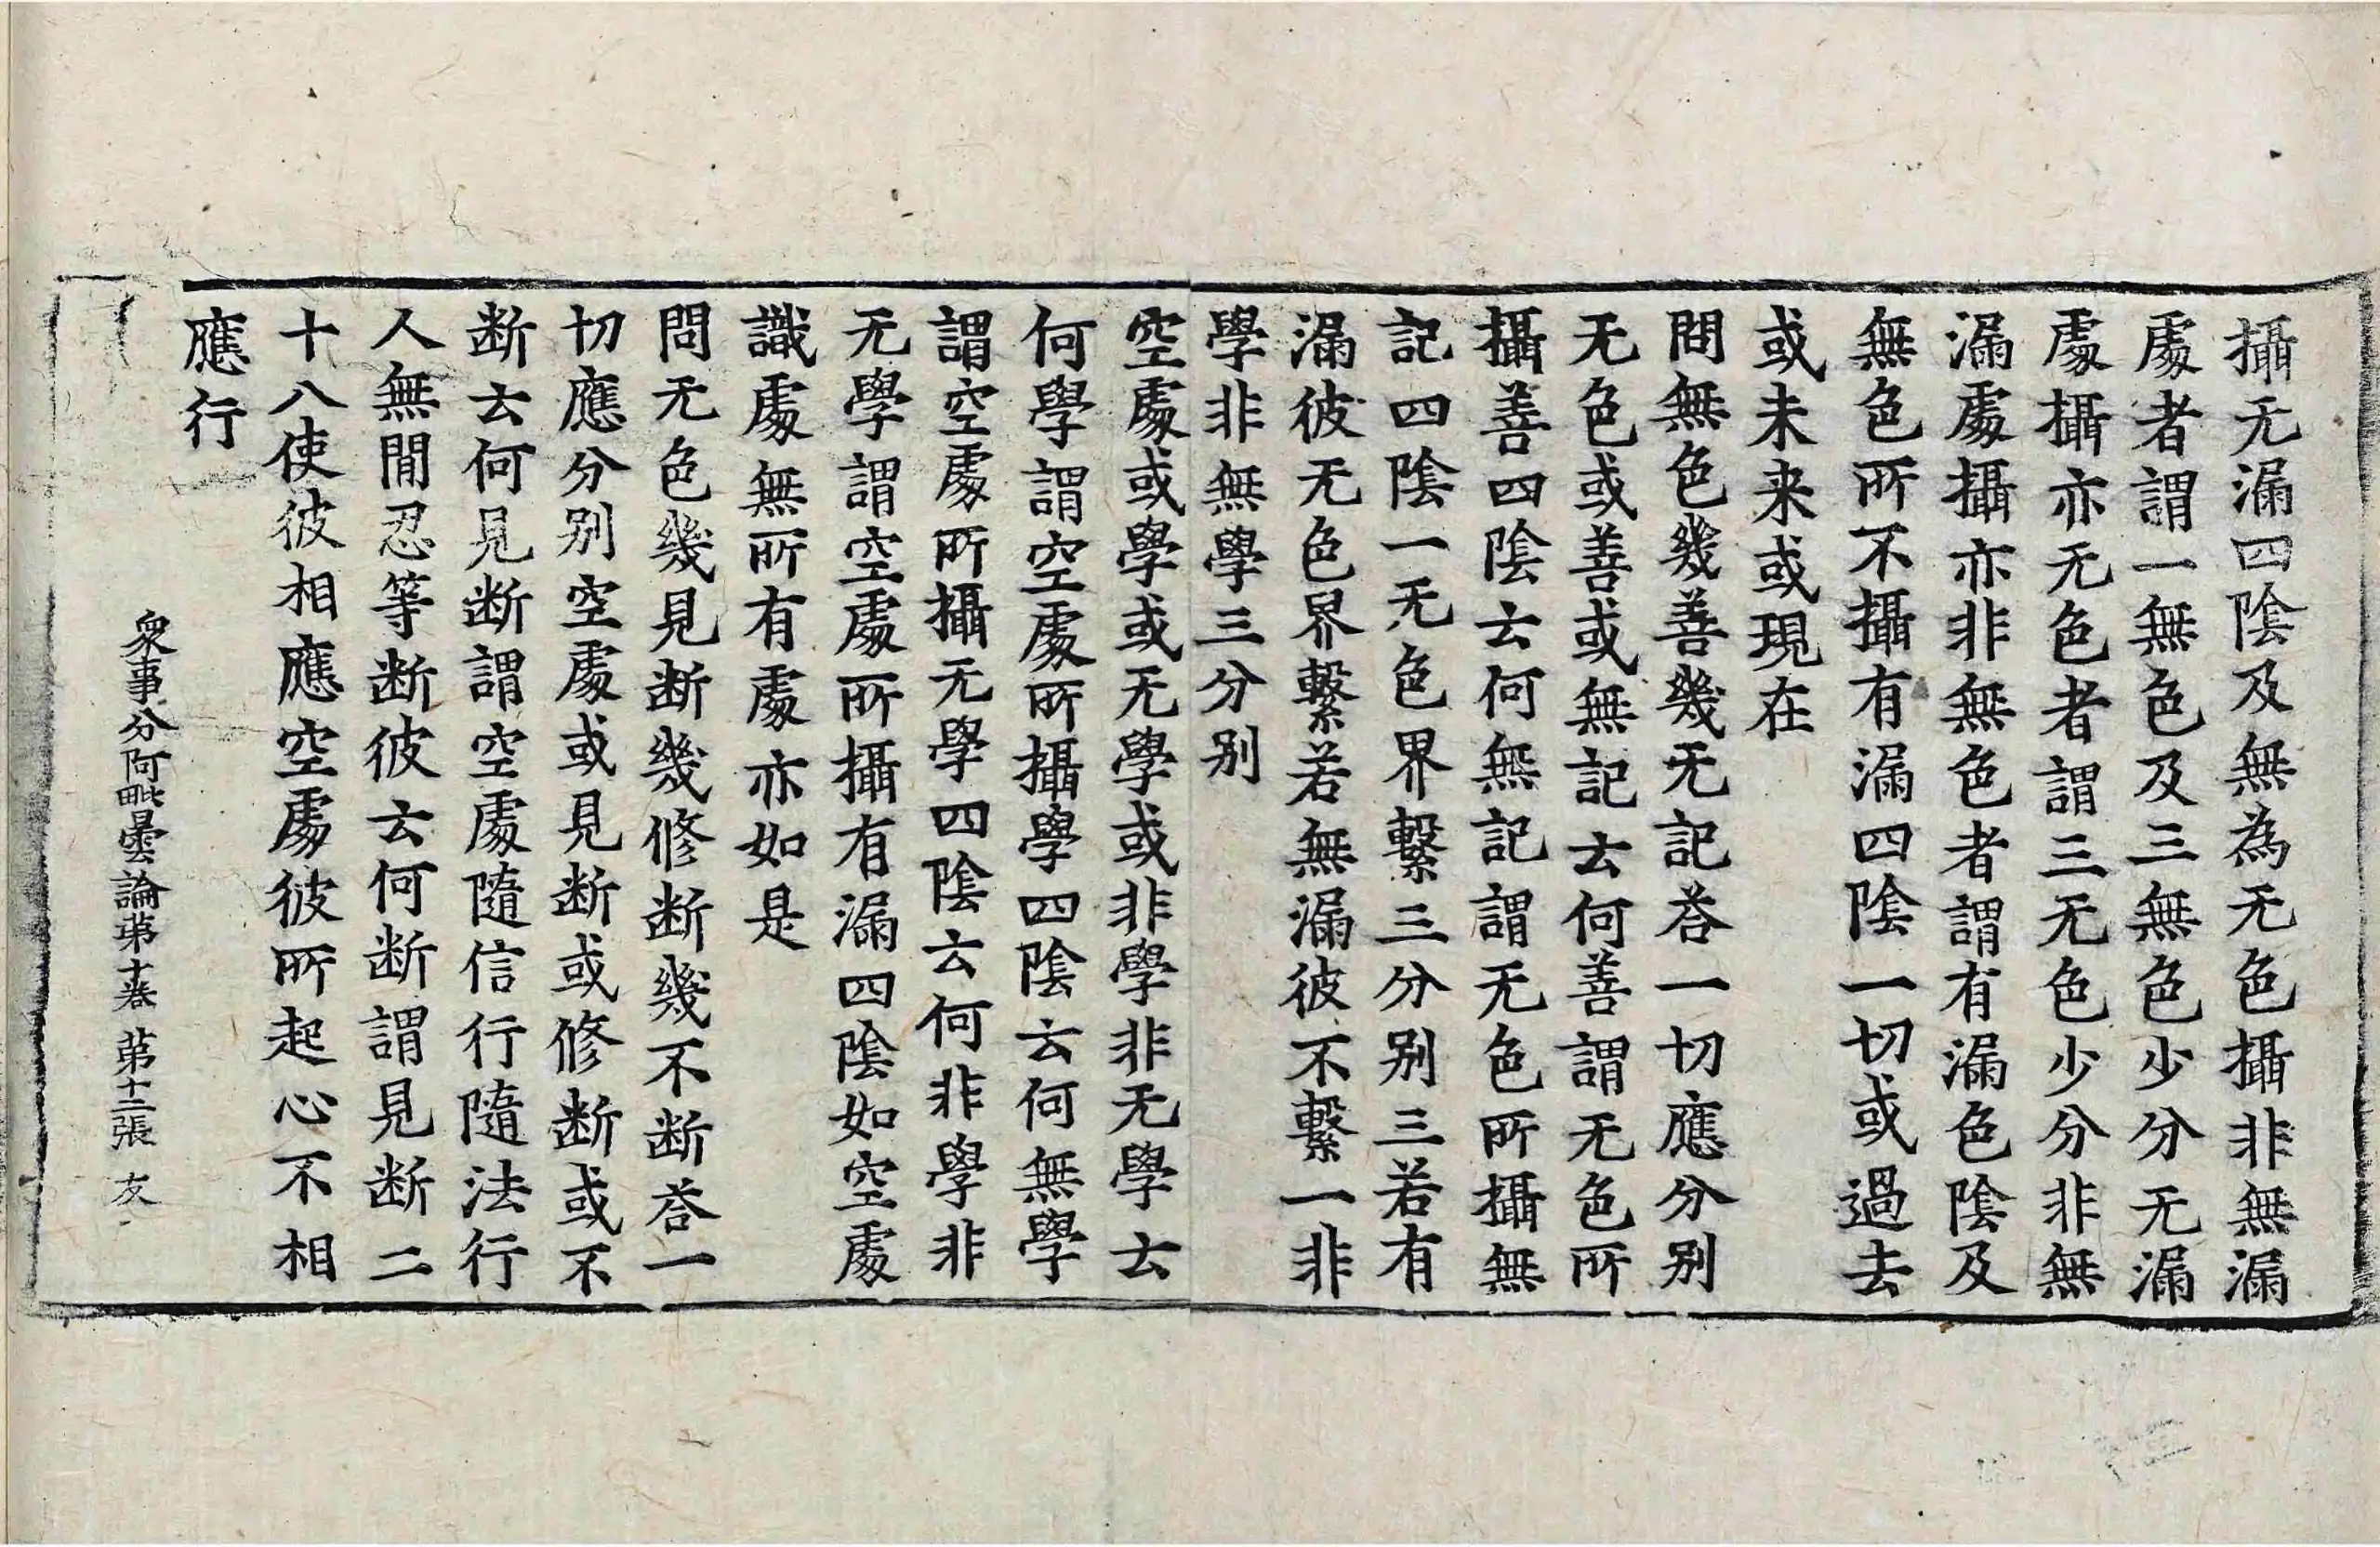 攝无漏四陰及無為无色攝非無漏
處者謂一無色及三無色少分无漏
處攝亦无色者謂三无色少分非無
漏處攝亦非無色者謂有漏色陰及
無色所不攝有漏四陰一切或過去
或未来或現在
問無色幾善幾无記荅一切應分別
无色或善或無記云何善謂无色所
攝善四陰云何無記謂无色所攝無
記四陰一无色界繫三分別三若有
漏彼无色界繫若無漏彼不繫一非
學非無學三分別
空處或學或无學或非學非无學云
何學謂空處所攝學四陰云何無學
謂空處所攝无學四陰云何非學非
无學謂空處所攝有漏四陰如空處
識處無所有處亦如是
問无色幾見断幾修断幾不断荅一
切應分別空處或見断或修断或不
断云何見断謂空處隨信行隨法行
人無閒忍等断彼云何断謂見断二
十八使彼相應空處彼所起心不相
應行
衆事分阿毗曇論苐十卷 苐十二張 友